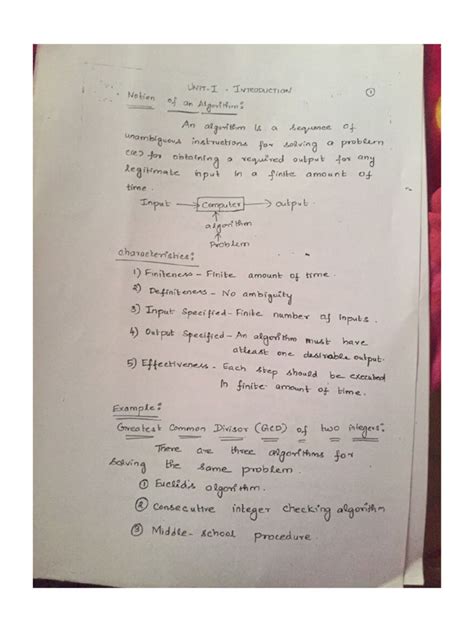 UNIT-I - INTRODUCTION
1
Notion of an Algorithm:
An algorithm is a sequence of
unambiguous instructions for solving a problem
(or) for obtaining a required output for any
legitimate input in a finite amount of
time.
Input → Computer → output.
algorithm
Problem
Characteristics:
1) Finiteness - Finite amount of time.
2) Definiteness - No ambiguity
3) Input Specified - Finite number of Inputs.
4) Output Specified - An algorithm must have
atleast one desirable output.
5) Effectiveness - Each step should be executed
in finite amount of time.
Example:
Greatest Common Divisor (GCD) of two integers:
There are three algorithms for
solving the same problem.
① Euclid's algorithm.
② Consecutive integer checking algorithm
③ Middle-school procedure